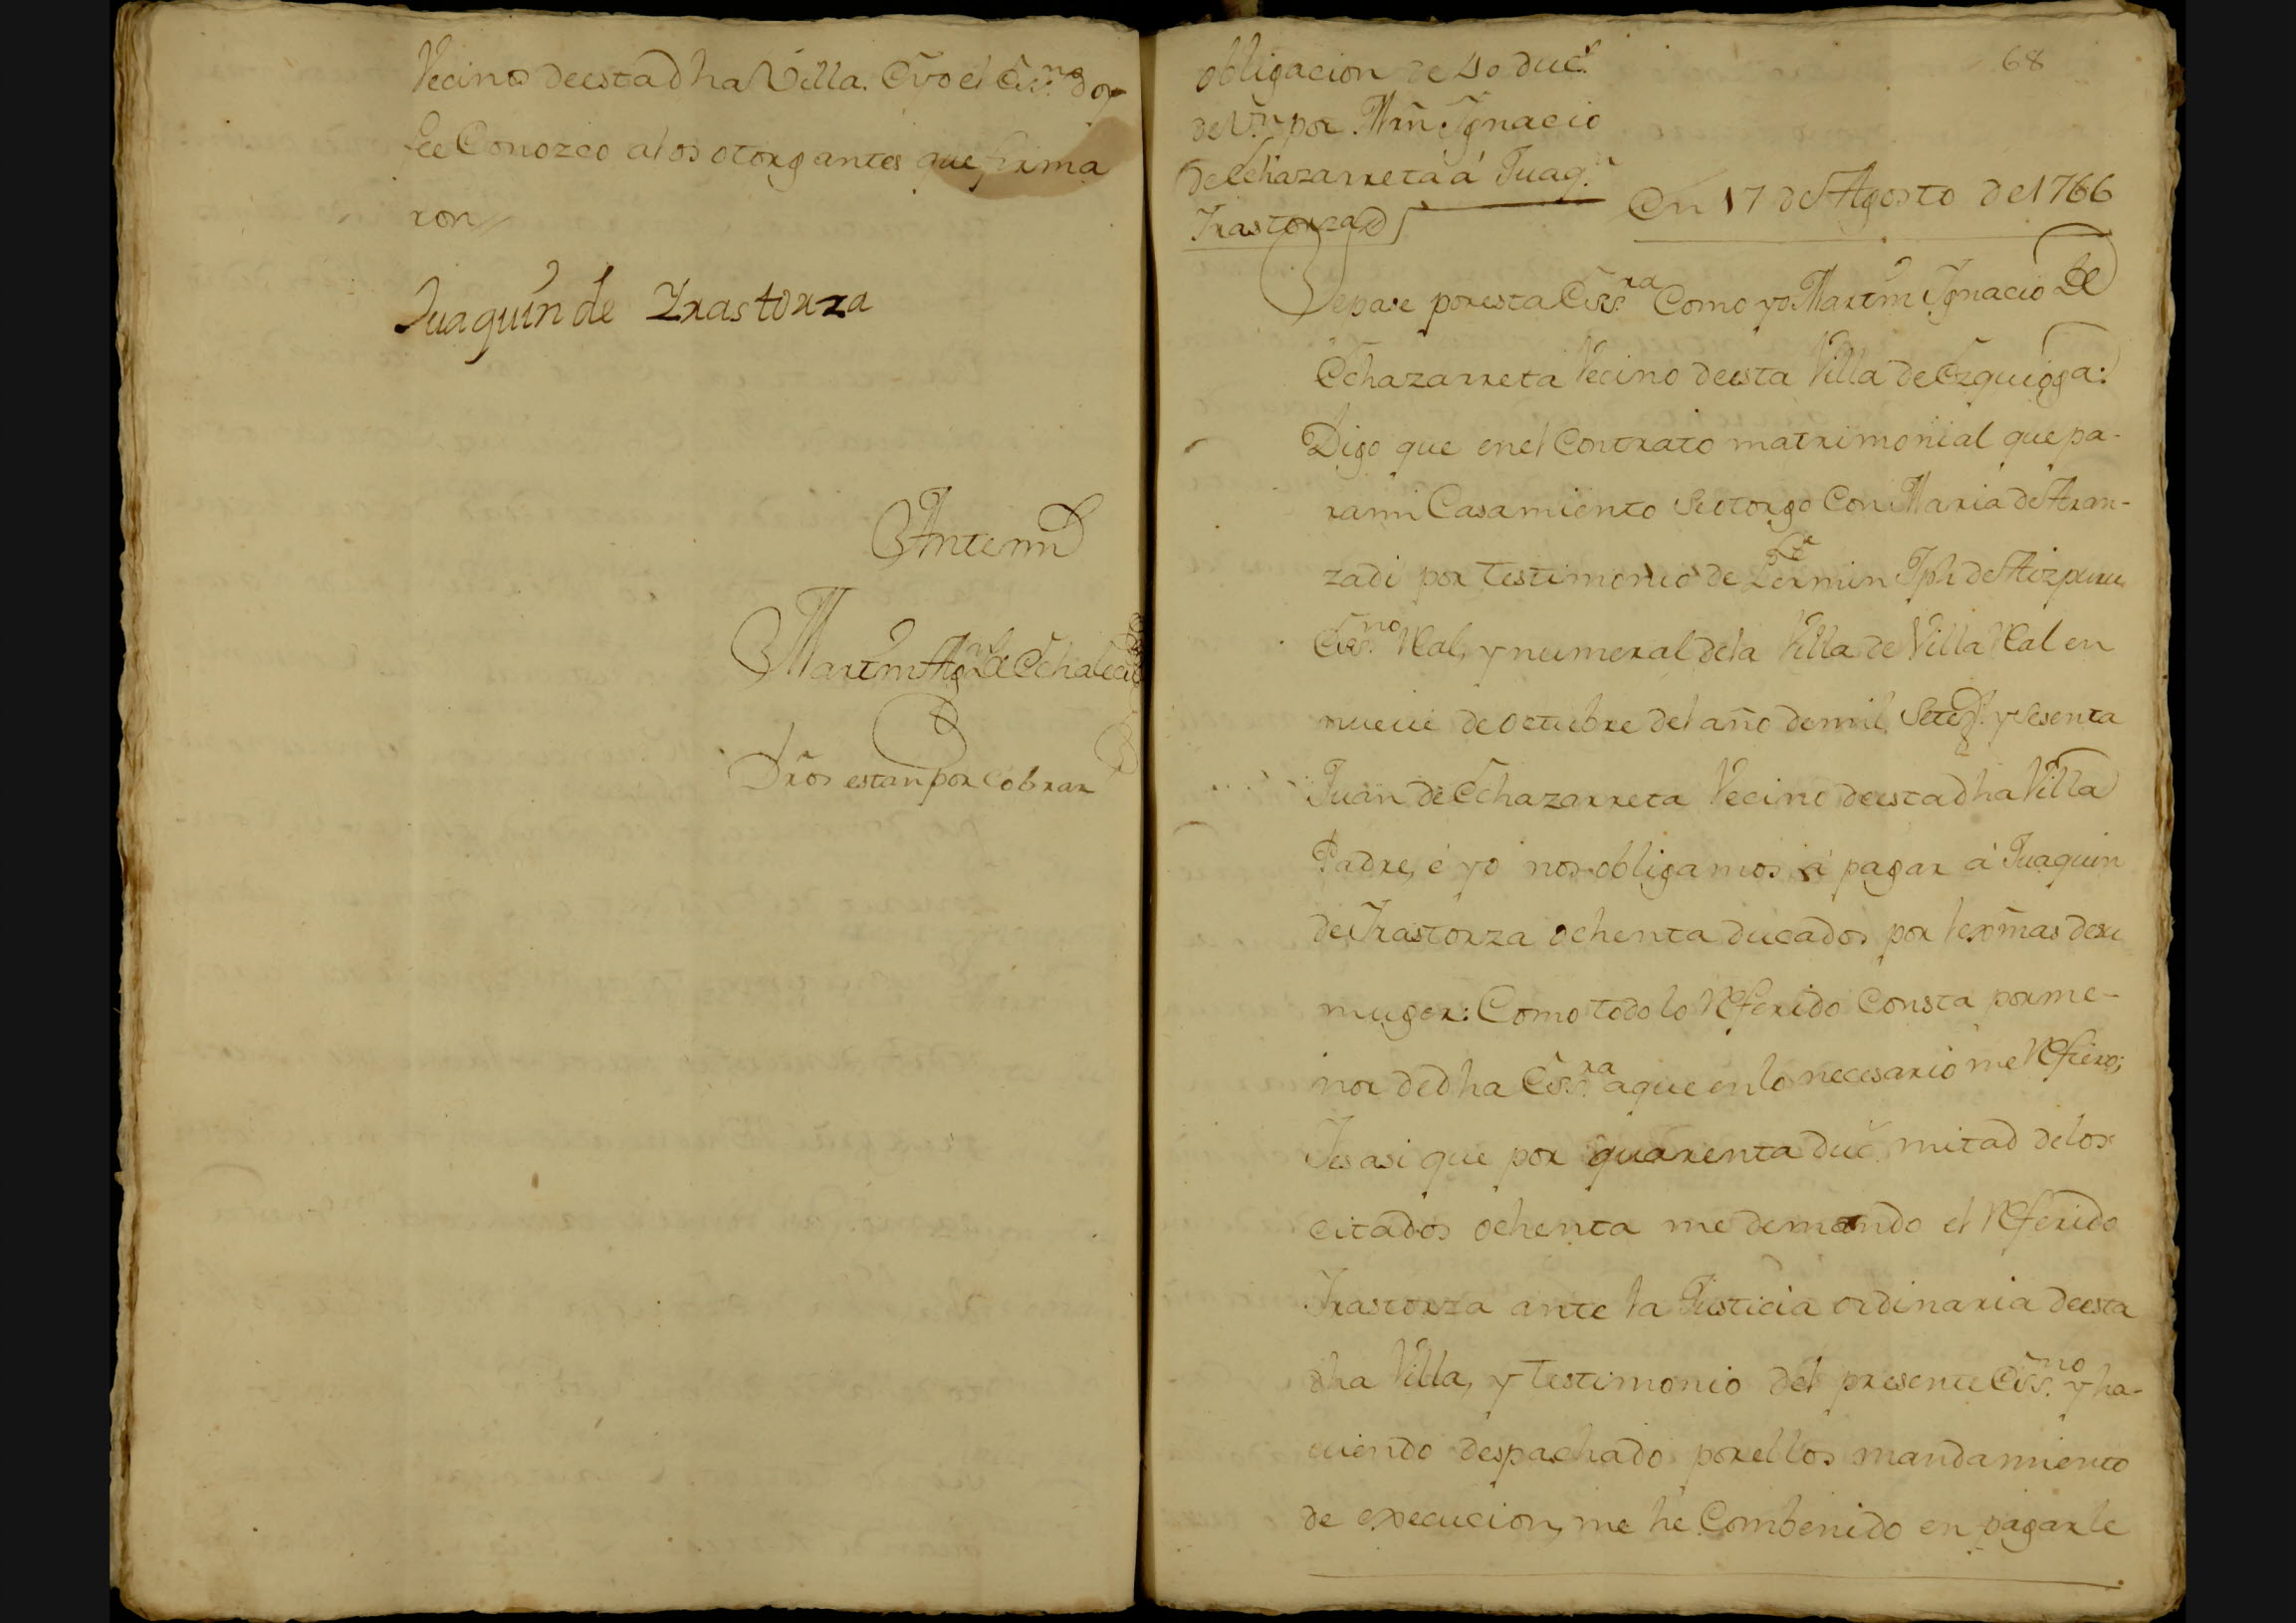 Vecinos deesta dha Villa. E yo el Essno. doy
fee Conozco alos otorgantes que firma
ron
Juaquin de Yrastorza
Antemi
Martin Agn. de Echalec
Dros estan por Cobrar
68
Obligacion de 40 ducs.
de Vn. por Mrn. Ygnacio
de Echazarreta á Juaqn.
Yrastorza
En 17 de Agosto de 1766
Sepase por esta Essra. Como yo Martin Ygnacio de
Echazarreta Vecino deesta Villa de Ezquioga:
Digo que en el Contrato matrimonial que pa-
ra mi Casamiento se otorgo Con Maria de Aran-
zadi por testimonio de Fermin Jph de Aizpuru
Essno. Ral, y numeral dela Villa de Villa Ral en
nueue de octubre del año de mil Setes. y Sesenta
Juan de Echazarreta Vecino deesta dha Villa
Padre, é yo nos obligamos á pagar á Juaquin
de Yrastorza ochenta ducados por lexmas desu
muger: Como todo lo Referido Consta porme-
nor de dha Essra. aque en lo necesario me Refiero;
Y es asi que por quarenta duc. mitad delos
citados ochenta me demando el Referido
Yrastorza ante la Justicia ordinaria deesta
dha Villa, y testimonio del presente Essno. y ha-
uiendo despachado por ellos mandamiento
de execucion, me he Combenido en pagarle